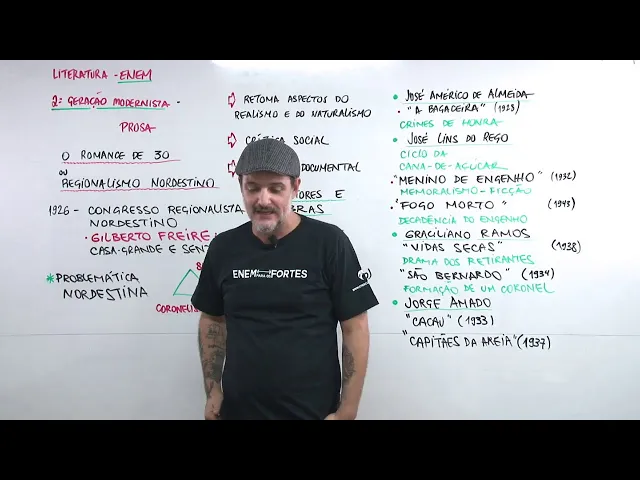 LITERATURA - ENEM
2ª GERAÇÃO MODERNISTA
PROSA
O ROMANCE DE 30
OU
REGIONALISMO NORDESTINO
1926 - CONGRESSO REGIONALISTA
NORDESTINO
• GILBERTO FREIRE
CASA-GRANDE E
* PROBLEMÁTICA
NORDESTINA
⇨ RETOMA ASPECTOS DO
REALISMO E DO NATURALISMO
⇨ CRÍTICA SOCIAL
DOCUMENTAL
E
• JOSÉ AMÉRICO DE ALMEIDA
• "A BAGACEIRA" (1928)
CRIMES DE HONRA
• JOSÉ LINS DO REGO
CICLO DA
CANA-DE-AÇÚCAR
• "MENINO DE ENGENHO" (1932)
MEMORALISMO - FICÇÃO
• "FOGO MORTO" (1943)
DECADÊNCIA DO ENGENHO
• GRACILIANO RAMOS
"VIDAS SECAS" (1938)
DRAMA DOS RETIRANTES
"SÃO BERNARDO" (1934)
FORMAÇÃO DE UM CORONEL
• JORGE AMADO
"CACAU" (1933)
"CAPITÃES DA AREIA" (1937)
ENEM FORTES